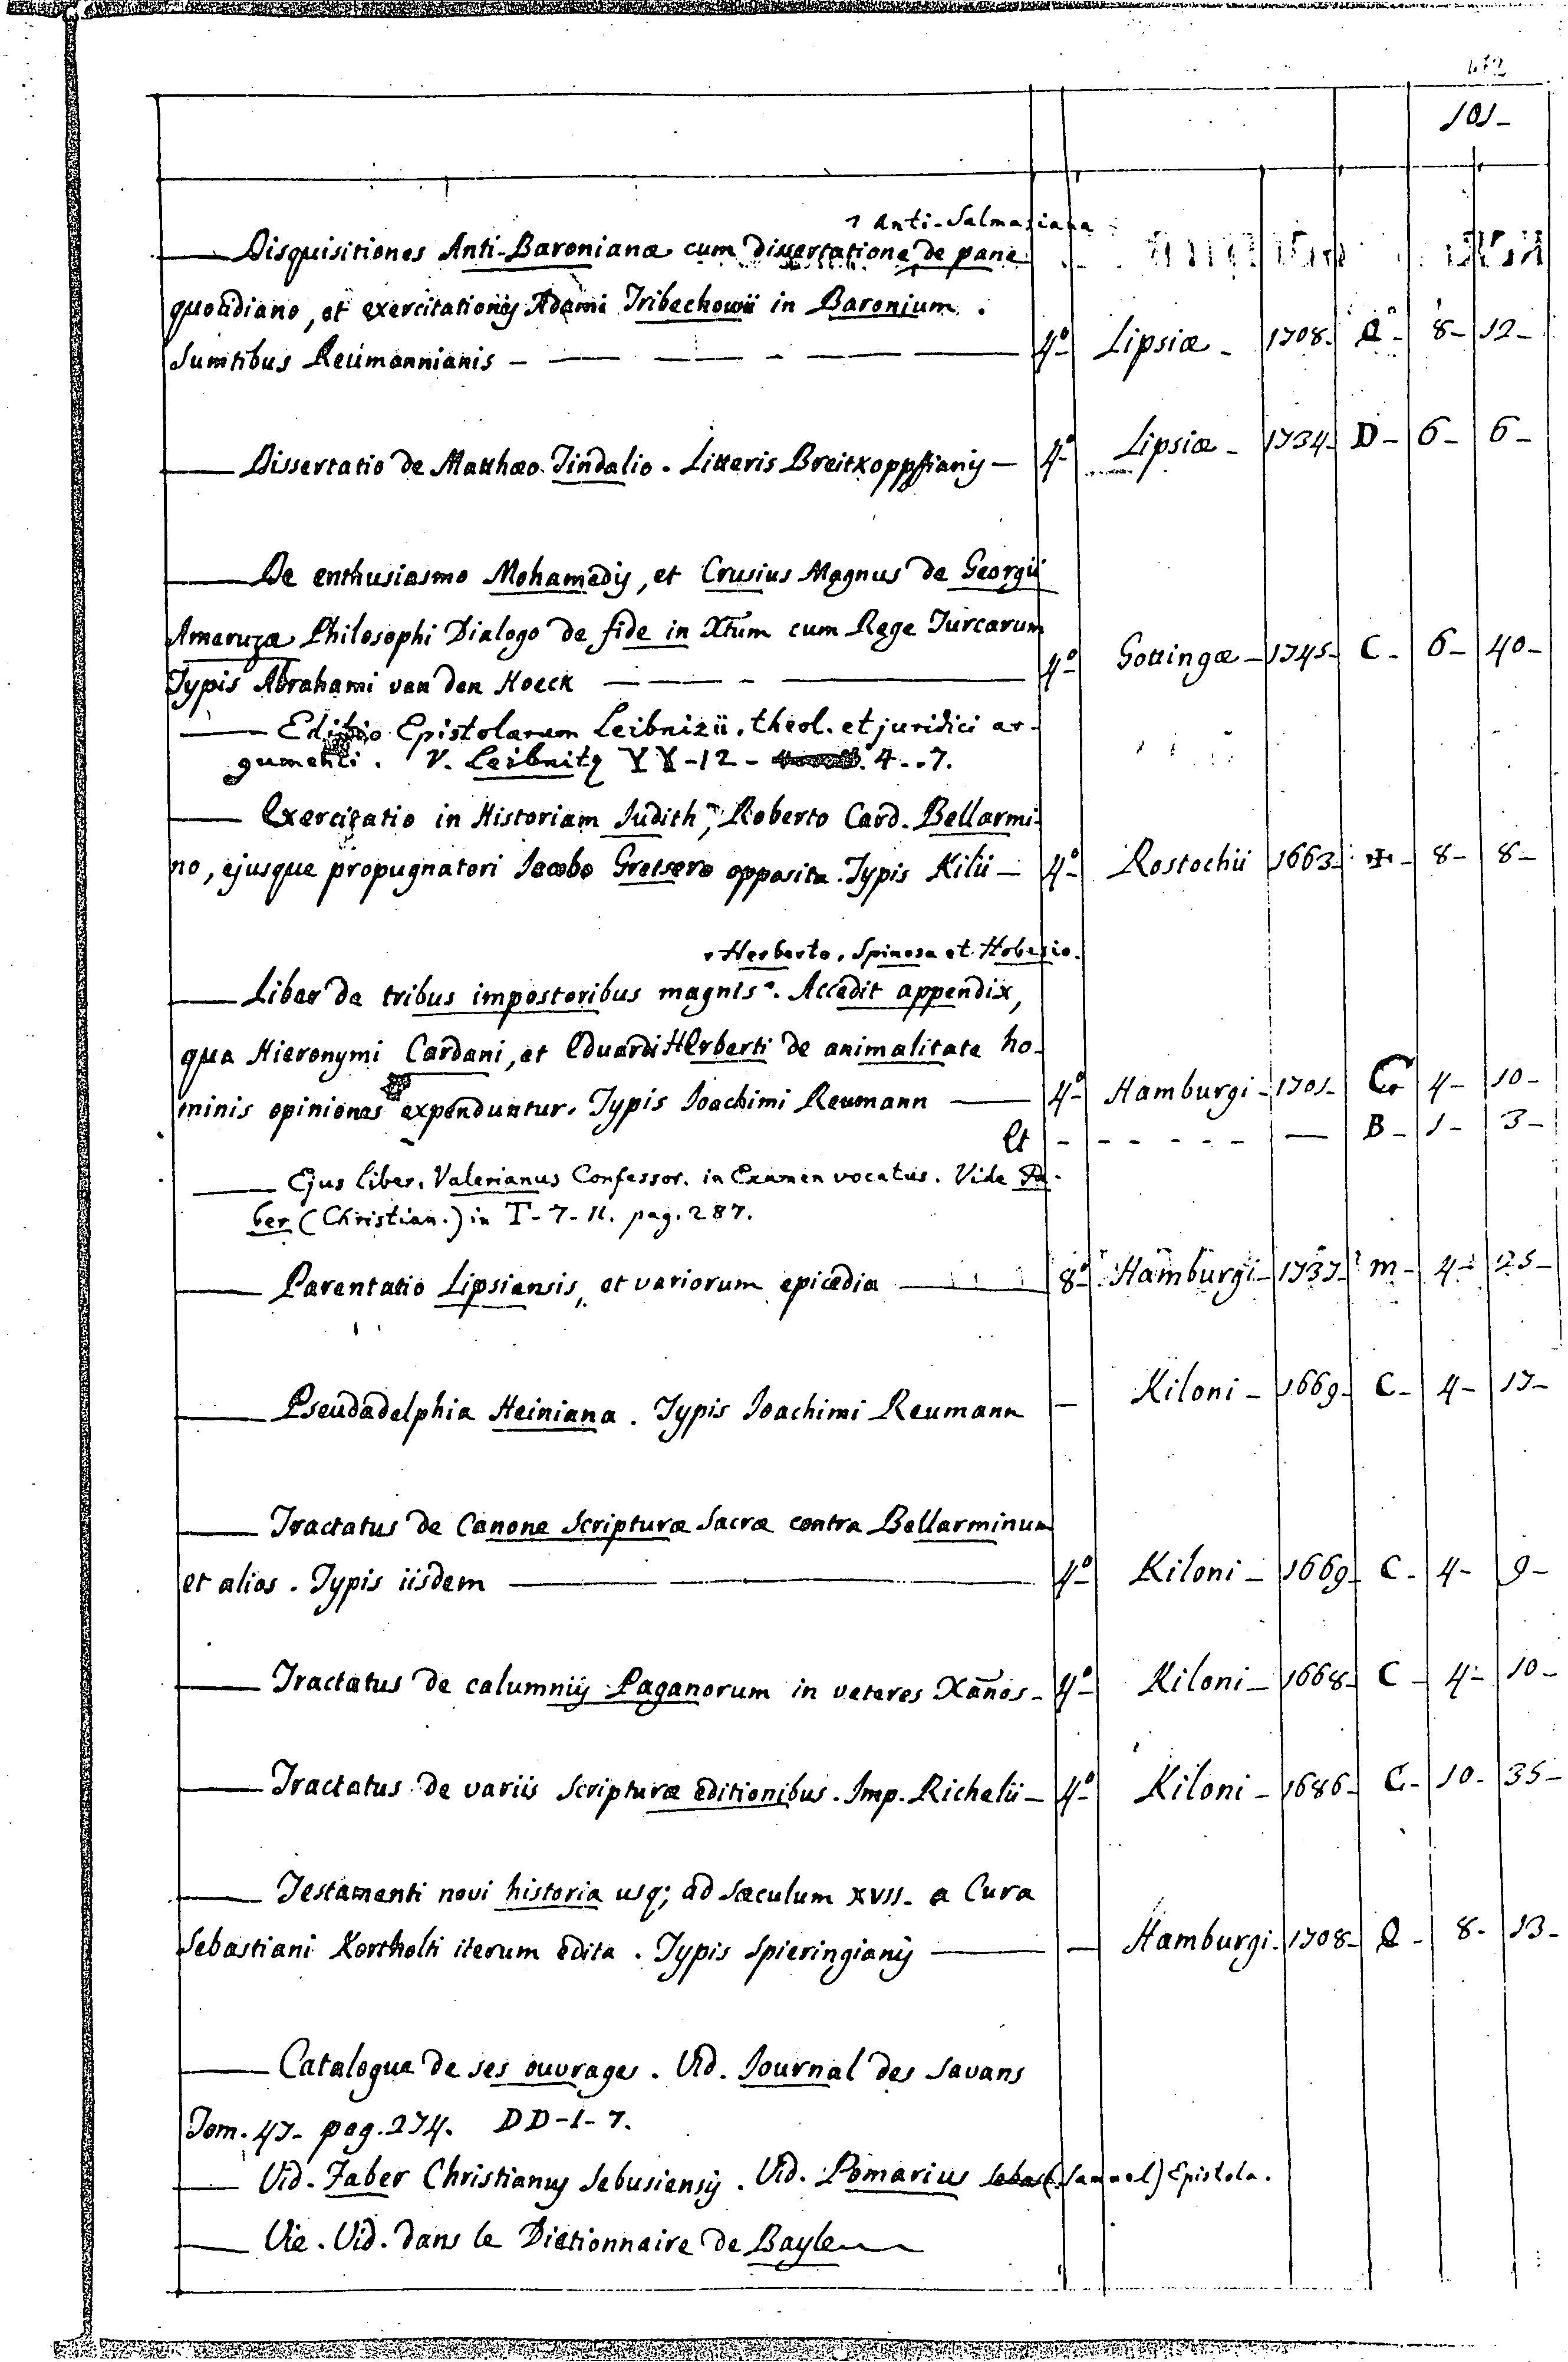 101-
Anti-Salmasiana
Disquisitiones Anti-Baronianæ cum dissertatione de pane
quotidiano, et exercitationis Adami Tribechowii in Baronium.
Sumtibus Reumannianis - 4º Lipsiæ - 1708- Q- 8- 12-
Dissertatio de Matthæo Tindalio. Litteris Breitkoppfianis - 4º Lipsiæ - 1734- D- 6- 6-
De enthusiasmo Mohamedis, et Crusius Magnus de Georgii
Ameruzæ Philosophi Dialogo de fide in Xtum cum Rege Turcarum
Typis Abrahami van den Hoeck - 4º Gottingæ - 1745- C- 6- 40-
Editio Epistolarum Leibnizii, theol. et juridici ar-
gumenti. V. Leibnitz YY-12- 4..7.
Exercitatio in Historiam Judith, Roberto Card. Bellarmi-
no, ejusque propugnatori Jacobo Gretsero opposita. Typis Kilii - 4º Rostochii 1663- 8- 8-
Herberto, Spinosa et Hobesio.
Liber de tribus impostoribus magnis. Accedit appendix,
qua Hieronymi Cardani, et Eduardi Herberti de animalitate ho-
minis opiniones expenduntur. Typis Joachimi Reumann - 4º Hamburgi - 1701- C 4- 10-
Et - - - - - - B- 1- 3-
Ejus liber, Valerianus Confessor. in Examen vocatus. Vide Fa-
ber (Christian.) in T-7-11. pag. 287.
Parentatio Lipsiensis, et variorum epicedia - 8º Hamburgi - 1737- m- 4- 25-
Pseudadelphia Heiniana. Typis Joachimi Reumann - Kiloni - 1669- C- 4- 17-
Tractatus de Canone Scripturæ Sacræ contra Bellarminum
et alios. Typis iisdem - 4º Kiloni - 1669- C- 4- 9-
Tractatus de calumniis Paganorum in veteres Xanos- 4º Kiloni - 1668- C- 4- 10-
Tractatus de variis Scripturæ editionibus. Imp. Richelii - 4º Kiloni - 1686- C- 10- 35-
Testamenti novi historia usq; ad sæculum XVII- a Cura
Sebastiani Kortholti iterum edita. Typis Spieringianis - Hamburgi - 1708- Q- 8- 13-
Catalogue de ses ouvrages. Vid. Journal des Savans
Tom. 47- pag. 274. DD-1-7.
Vid. Faber Christianus Sebusiensis. Vid. Pomarius (Samuel) Epistola.
Vie. Vid. dans le Dictionnaire de Bayle